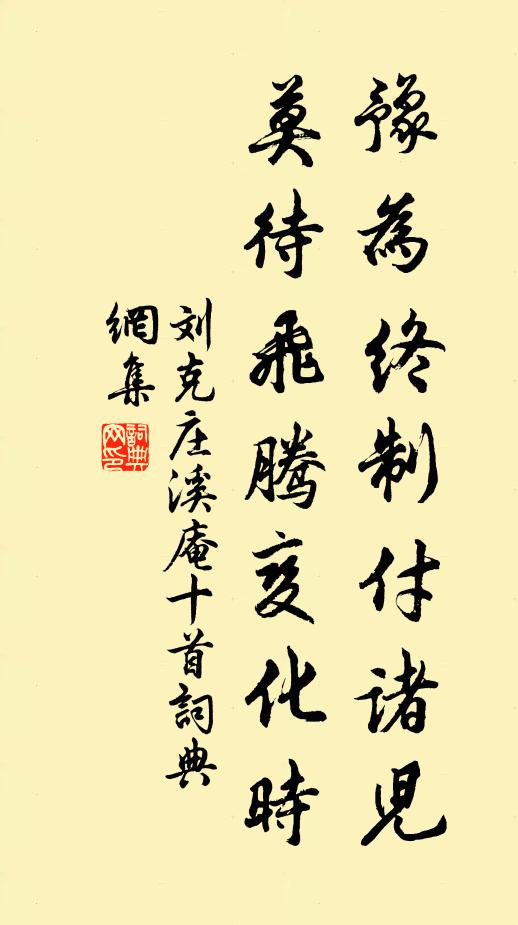 豫為終制付諸児
莫待飛騰变化時
刘克庄溪庵十首詞典
網集
詞典网印